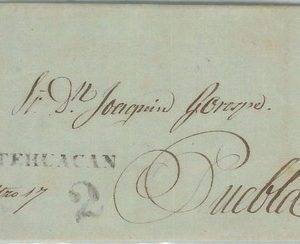 Sr. Dn. Joaquin Crespo.
TEHUACAN
Puebla
17
2